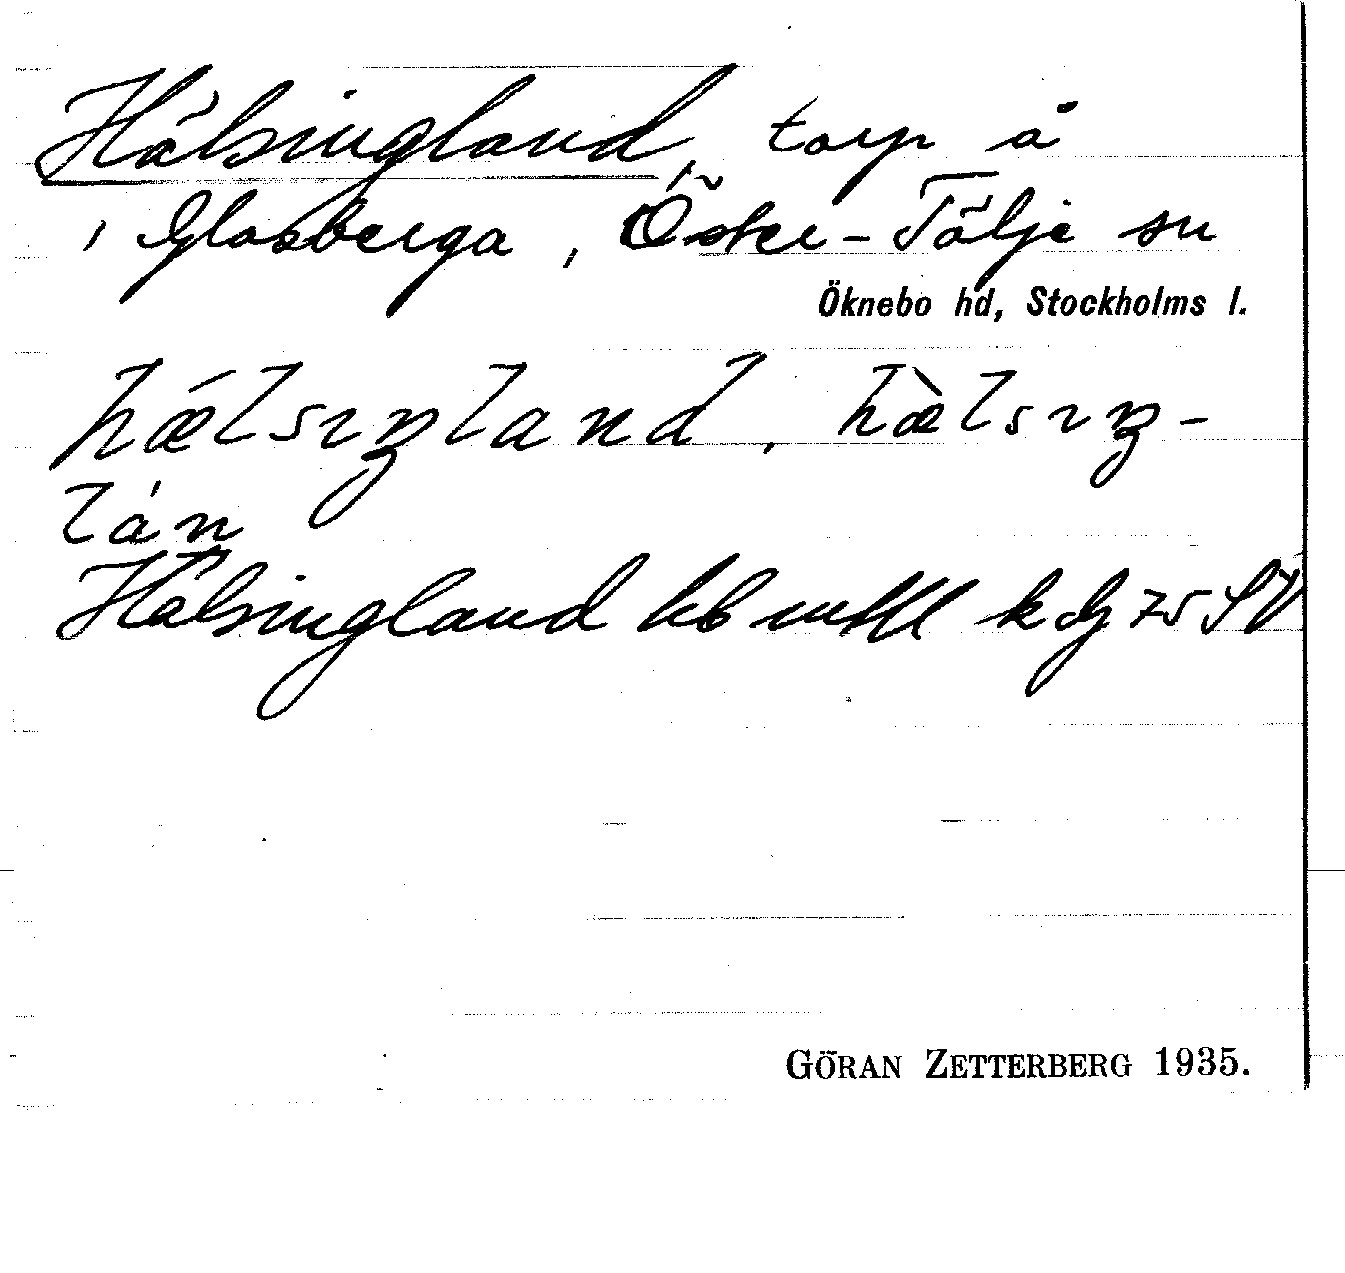 Hälsingland, torp å
i Glasberga, Öster-Tälje sn
Öknebo hd, Stockholms l.
hǽlsıŋland, hæ̀lsıŋ-
lán
Hälsingland kb
GÖRAN ZETTERBERG 1935.